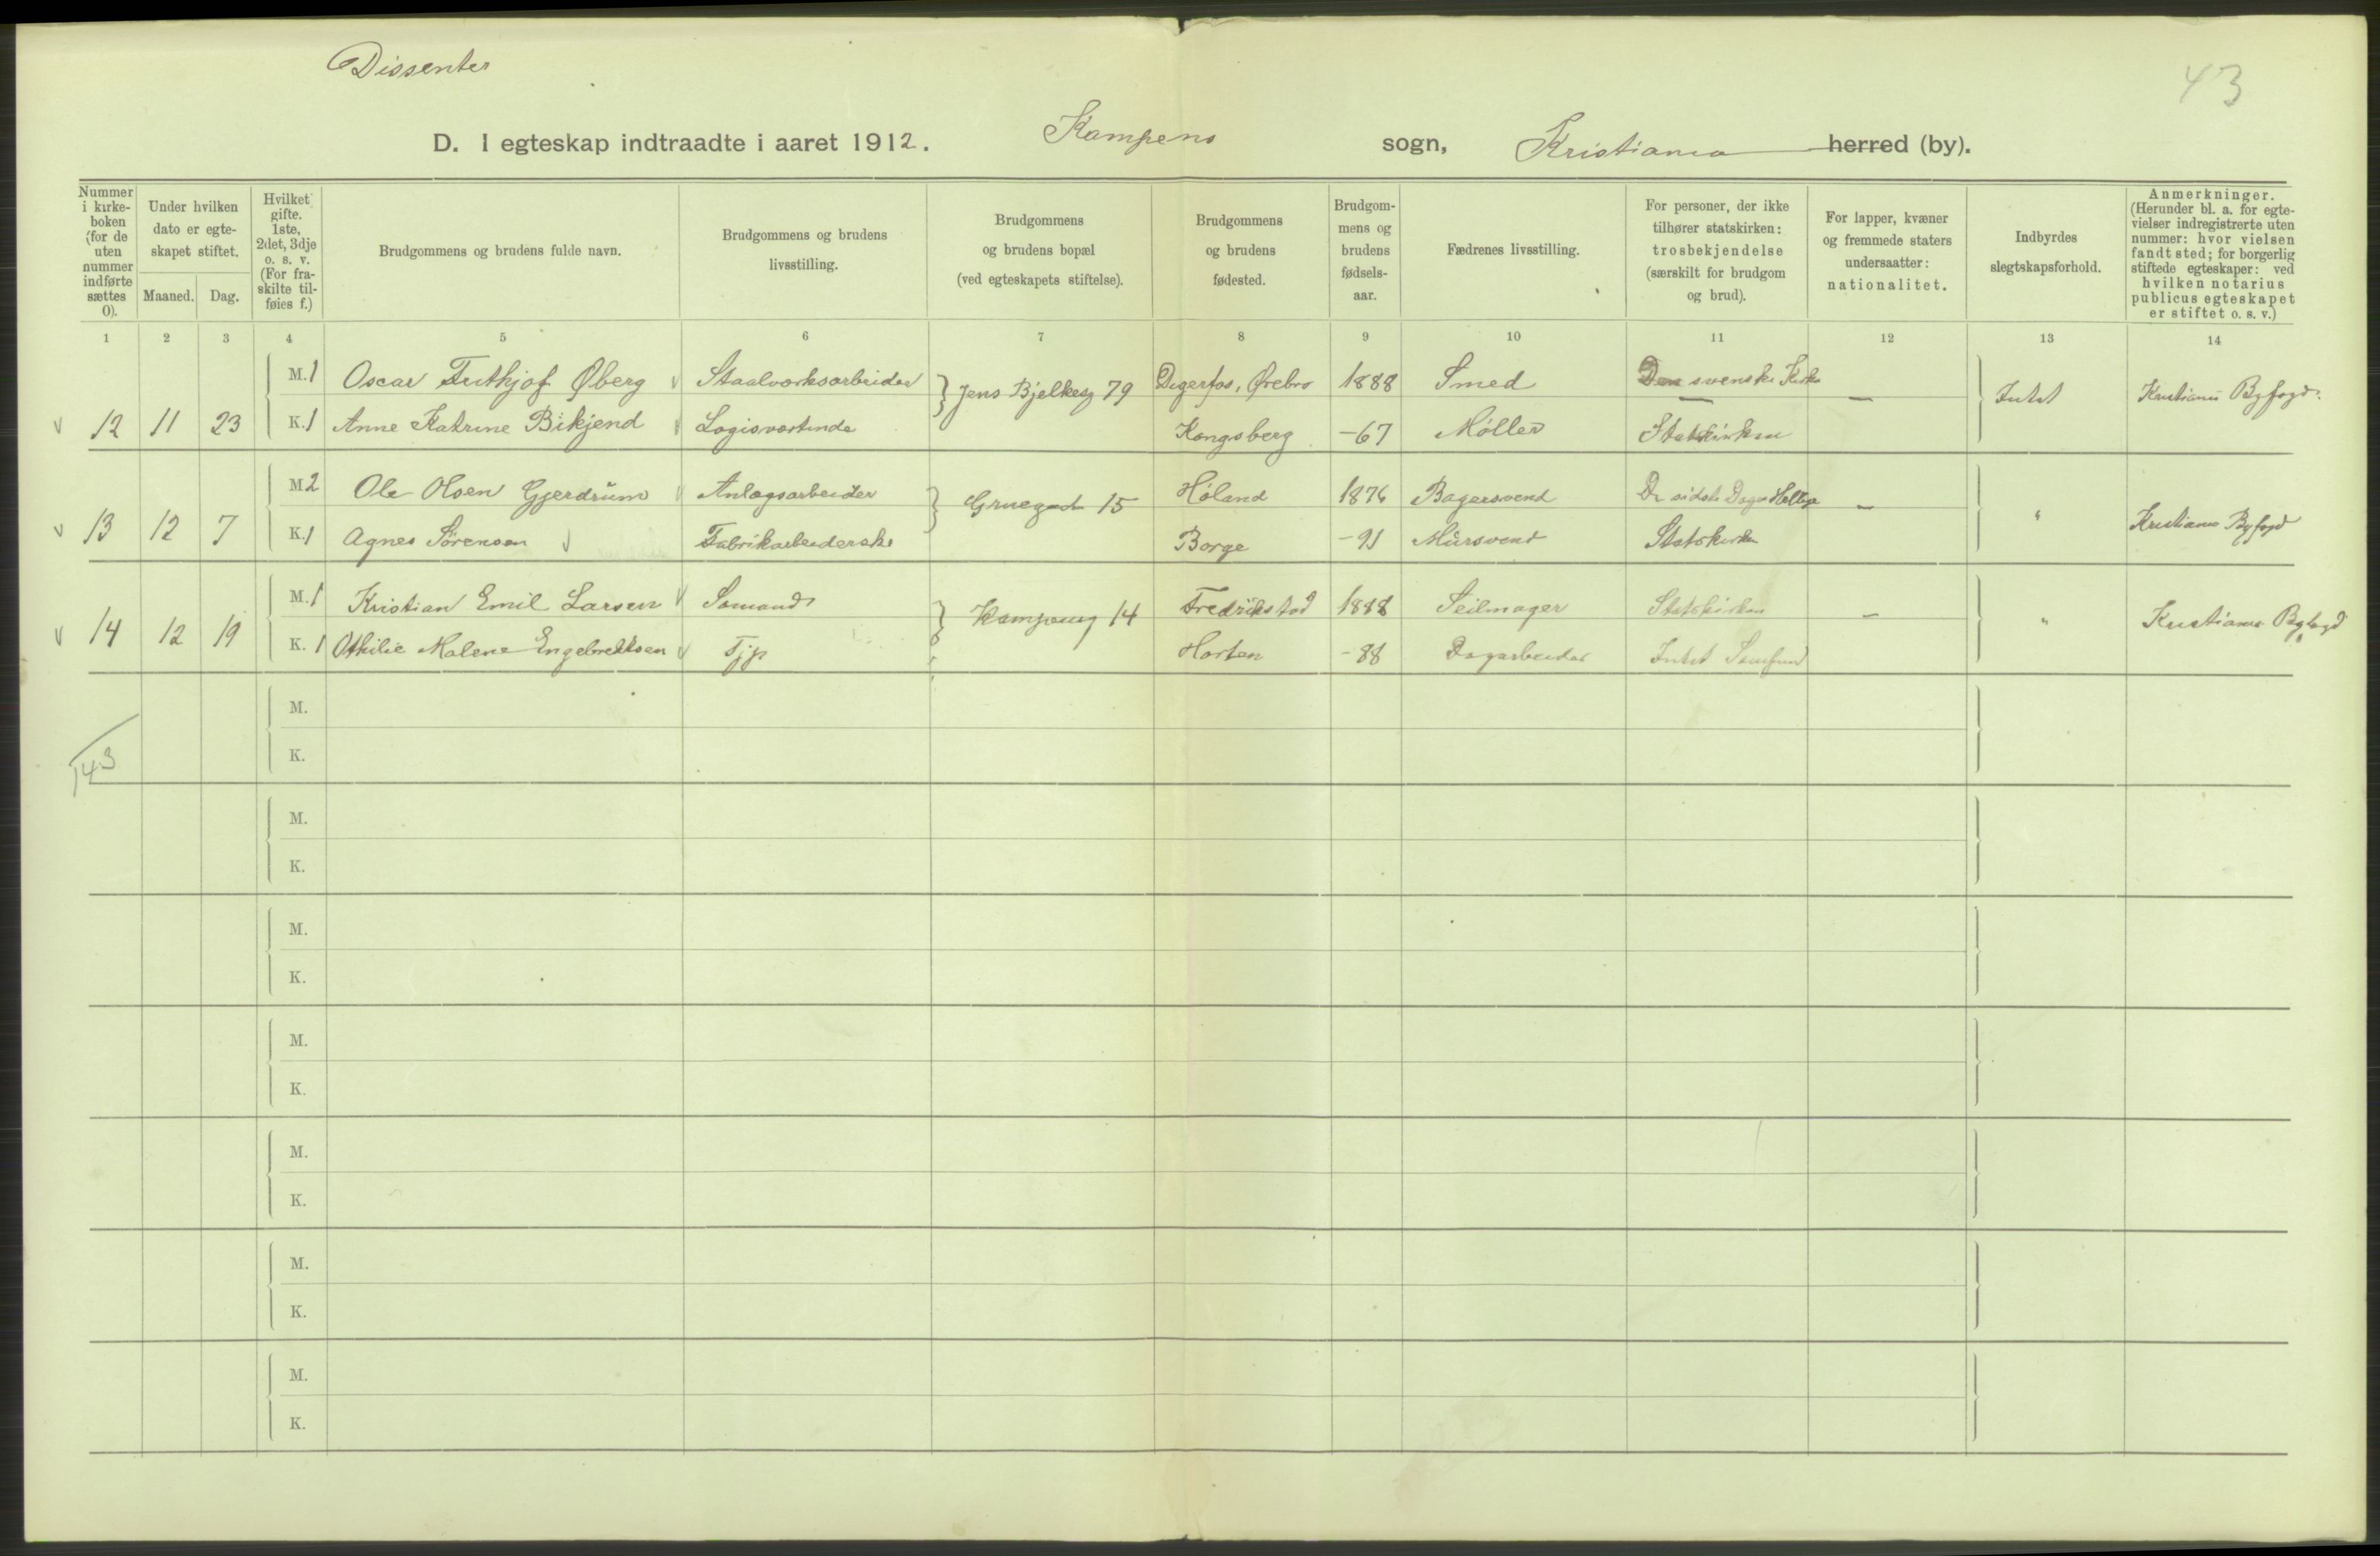 Dissenter
43
D. I egteskap indtraadte i aaret 1912. Kampens sogn, Kristiania herred (by).
Nummer i kirke-boken (for de uten nummer indførte sættes 0).
Under hvilken dato er egte-skapet stiftet.
Maaned. Dag.
Hvilket gifte. 1ste, 2det, 3dje o. s. v. (For fra-skilte til-føies f.)
Brudgommens og brudens fulde navn.
Brudgommens og brudens livsstilling.
Brudgommens og brudens bopæl (ved egteskapets stiftelse).
Brudgommens og brudens fødested.
Brudgom-mens og brudens fødsels-aar.
Fædrenes livsstilling.
For personer, der ikke tilhører statskirken: trosbekjendelse (særskilt for brudgom og brud).
For lapper, kvæner og fremmede staters undersaatter: nationalitet.
Indbyrdes slegtskapsforhold.
Anmerkninger. (Herunder bl. a. for egte-vielser indregistrerte uten nummer: hvor vielsen fandt sted; for borgerlig stiftede egteskaper: ved hvilken notarius publicus egteskapet er stiftet o. s. v.)
1 2 3 4 5 6 7 8 9 10 11 12 13 14
M. 1 Oscar Frithjof Øberg Staalværksarbeider } Jens Bjelkesg 79 Degerfos, Ørebro 1888 Smed Den svenske Kirke — Intet Kristiania Byfogd.
v 12 11 23 K. 1 Anne Katrine Bikjend Logisværtinde Kongsberg -67 Møller Statskirken
M. 2 Ole Olsen Gjerdrum Anlægsarbeider } Gruegad 15 Høland 1876 Bagersvend De sidste Dages Hellige — " Kristiania Byfogd
v 13 12 7 K. 1 Agnes Sørensen Fabrikarbeiderske Borge -91 Mursvend Statskirken
M. 1 Kristian Emil Larsen Sømand } Kampeng 14 Fredrikstad 1888 Seilmager Statskirken — " Kristiania Byfogd
v 14 12 19 K. 1 Othilie Malene Engebretsen Tjp Horten -88 Dagarbeider Intet Samfund
M.
K.
143
M.
K.
M.
K.
M.
K.
M.
K.
M.
K.
M.
K.